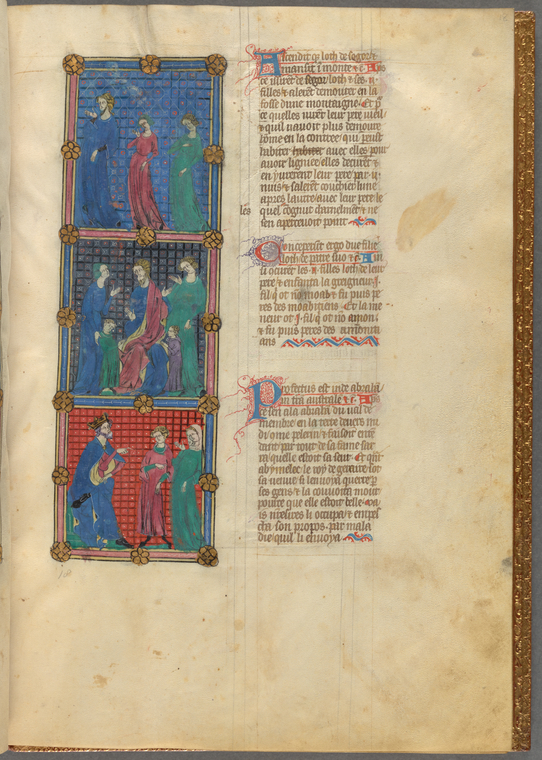 Ascendit q; loth de segor &
mansit ī monte & c Apͥs
ce issirēt de segor loth & ses .ii.
filles & alerēt demourer en la
fosse dune montaigne. Et pͬ
ce quelles uirēt leur pere uieil
& quil nauoit plus demoure
lome en la contree qui peust
habiter habiter avec elles pour
auoir lignie elles
en yurerent leur pere par .ii.
nuis & salerēt couchier lune
apres lautre avec leur pere le
les
quel cognut charnelmēt & ne
sen aperceuoit point
Concepert ergo due filie
loth de patre suo & c Ain
si .ii. filles loth de leur
pere & enfanta la greigneur .i.
fil q̄ ot nō moab & fu puis pe
res des moabitiens. Et la me
neur ot .i. fil q̄ ot nō amon
& fu puis peres des
ans
Profectus est inde abrahā
in trā australē & c. Apͥs
ce sen ala abrahā du ual de
membre en la terre deuers mi
di 9me pelerin & faisoit entē
dant par tout de sa fame sar
ra quelle estoit sa seur. Et qāt
abymelec le roy de gerarre sot
sa uenue il lenuoya querre p
ses gens & la couuoita mout
pource que elle estoit belle
nresires li occupa & empes
cha son propos par mala
die quil li enuoya